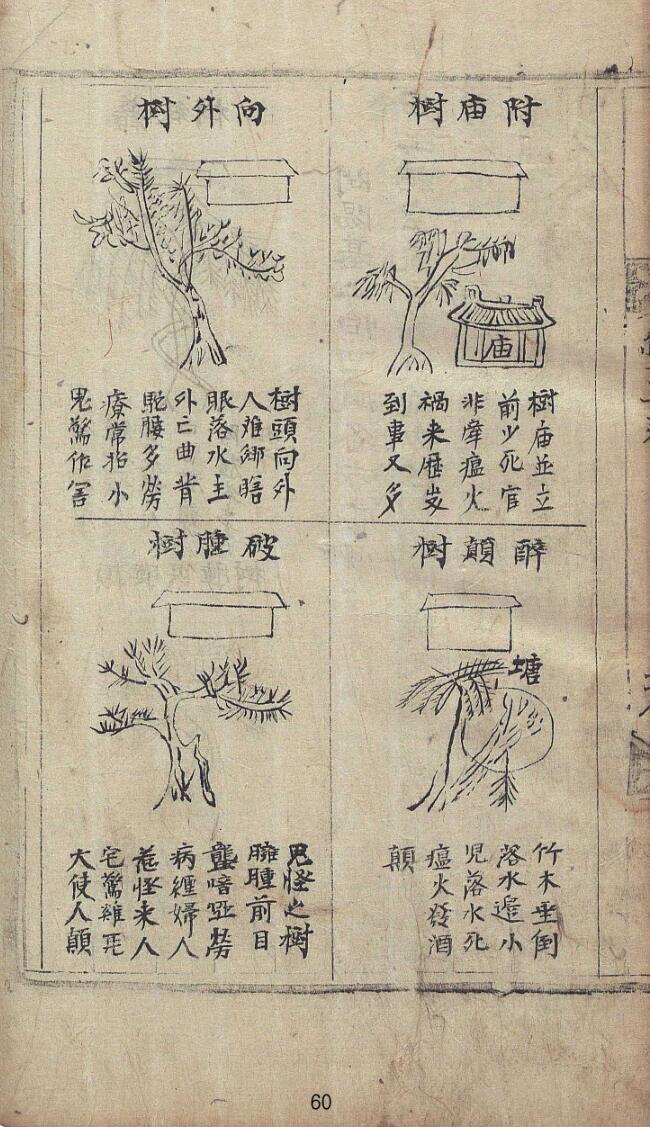 附庙樹
庙
樹庙並立
前少死官
非瘴瘟火
禍来歷
到事又多
向外樹
樹頭向外
人难瞎
眼落水主
外亡曲背
駝腰多勞
療常招小
鬼驚作害
醉顛樹
塘
竹木垂倒
落水邉小
児落水死
瘟火發酒
顛
破腫樹
鬼怪之樹
臃腫前目
聾喑哑勞
病纏婦人
惹怪来人
宅驚雞
大使人顛
60